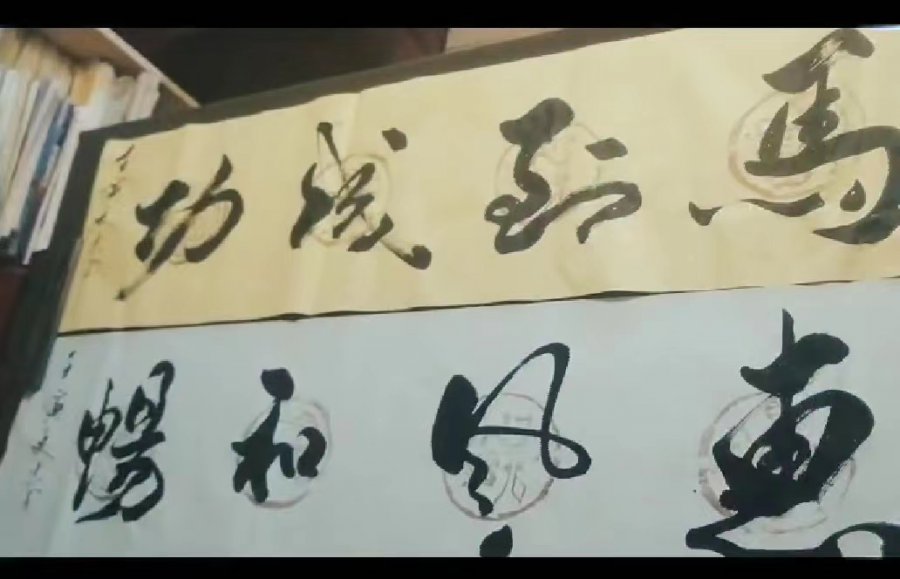 馬到成功
惠風和暢